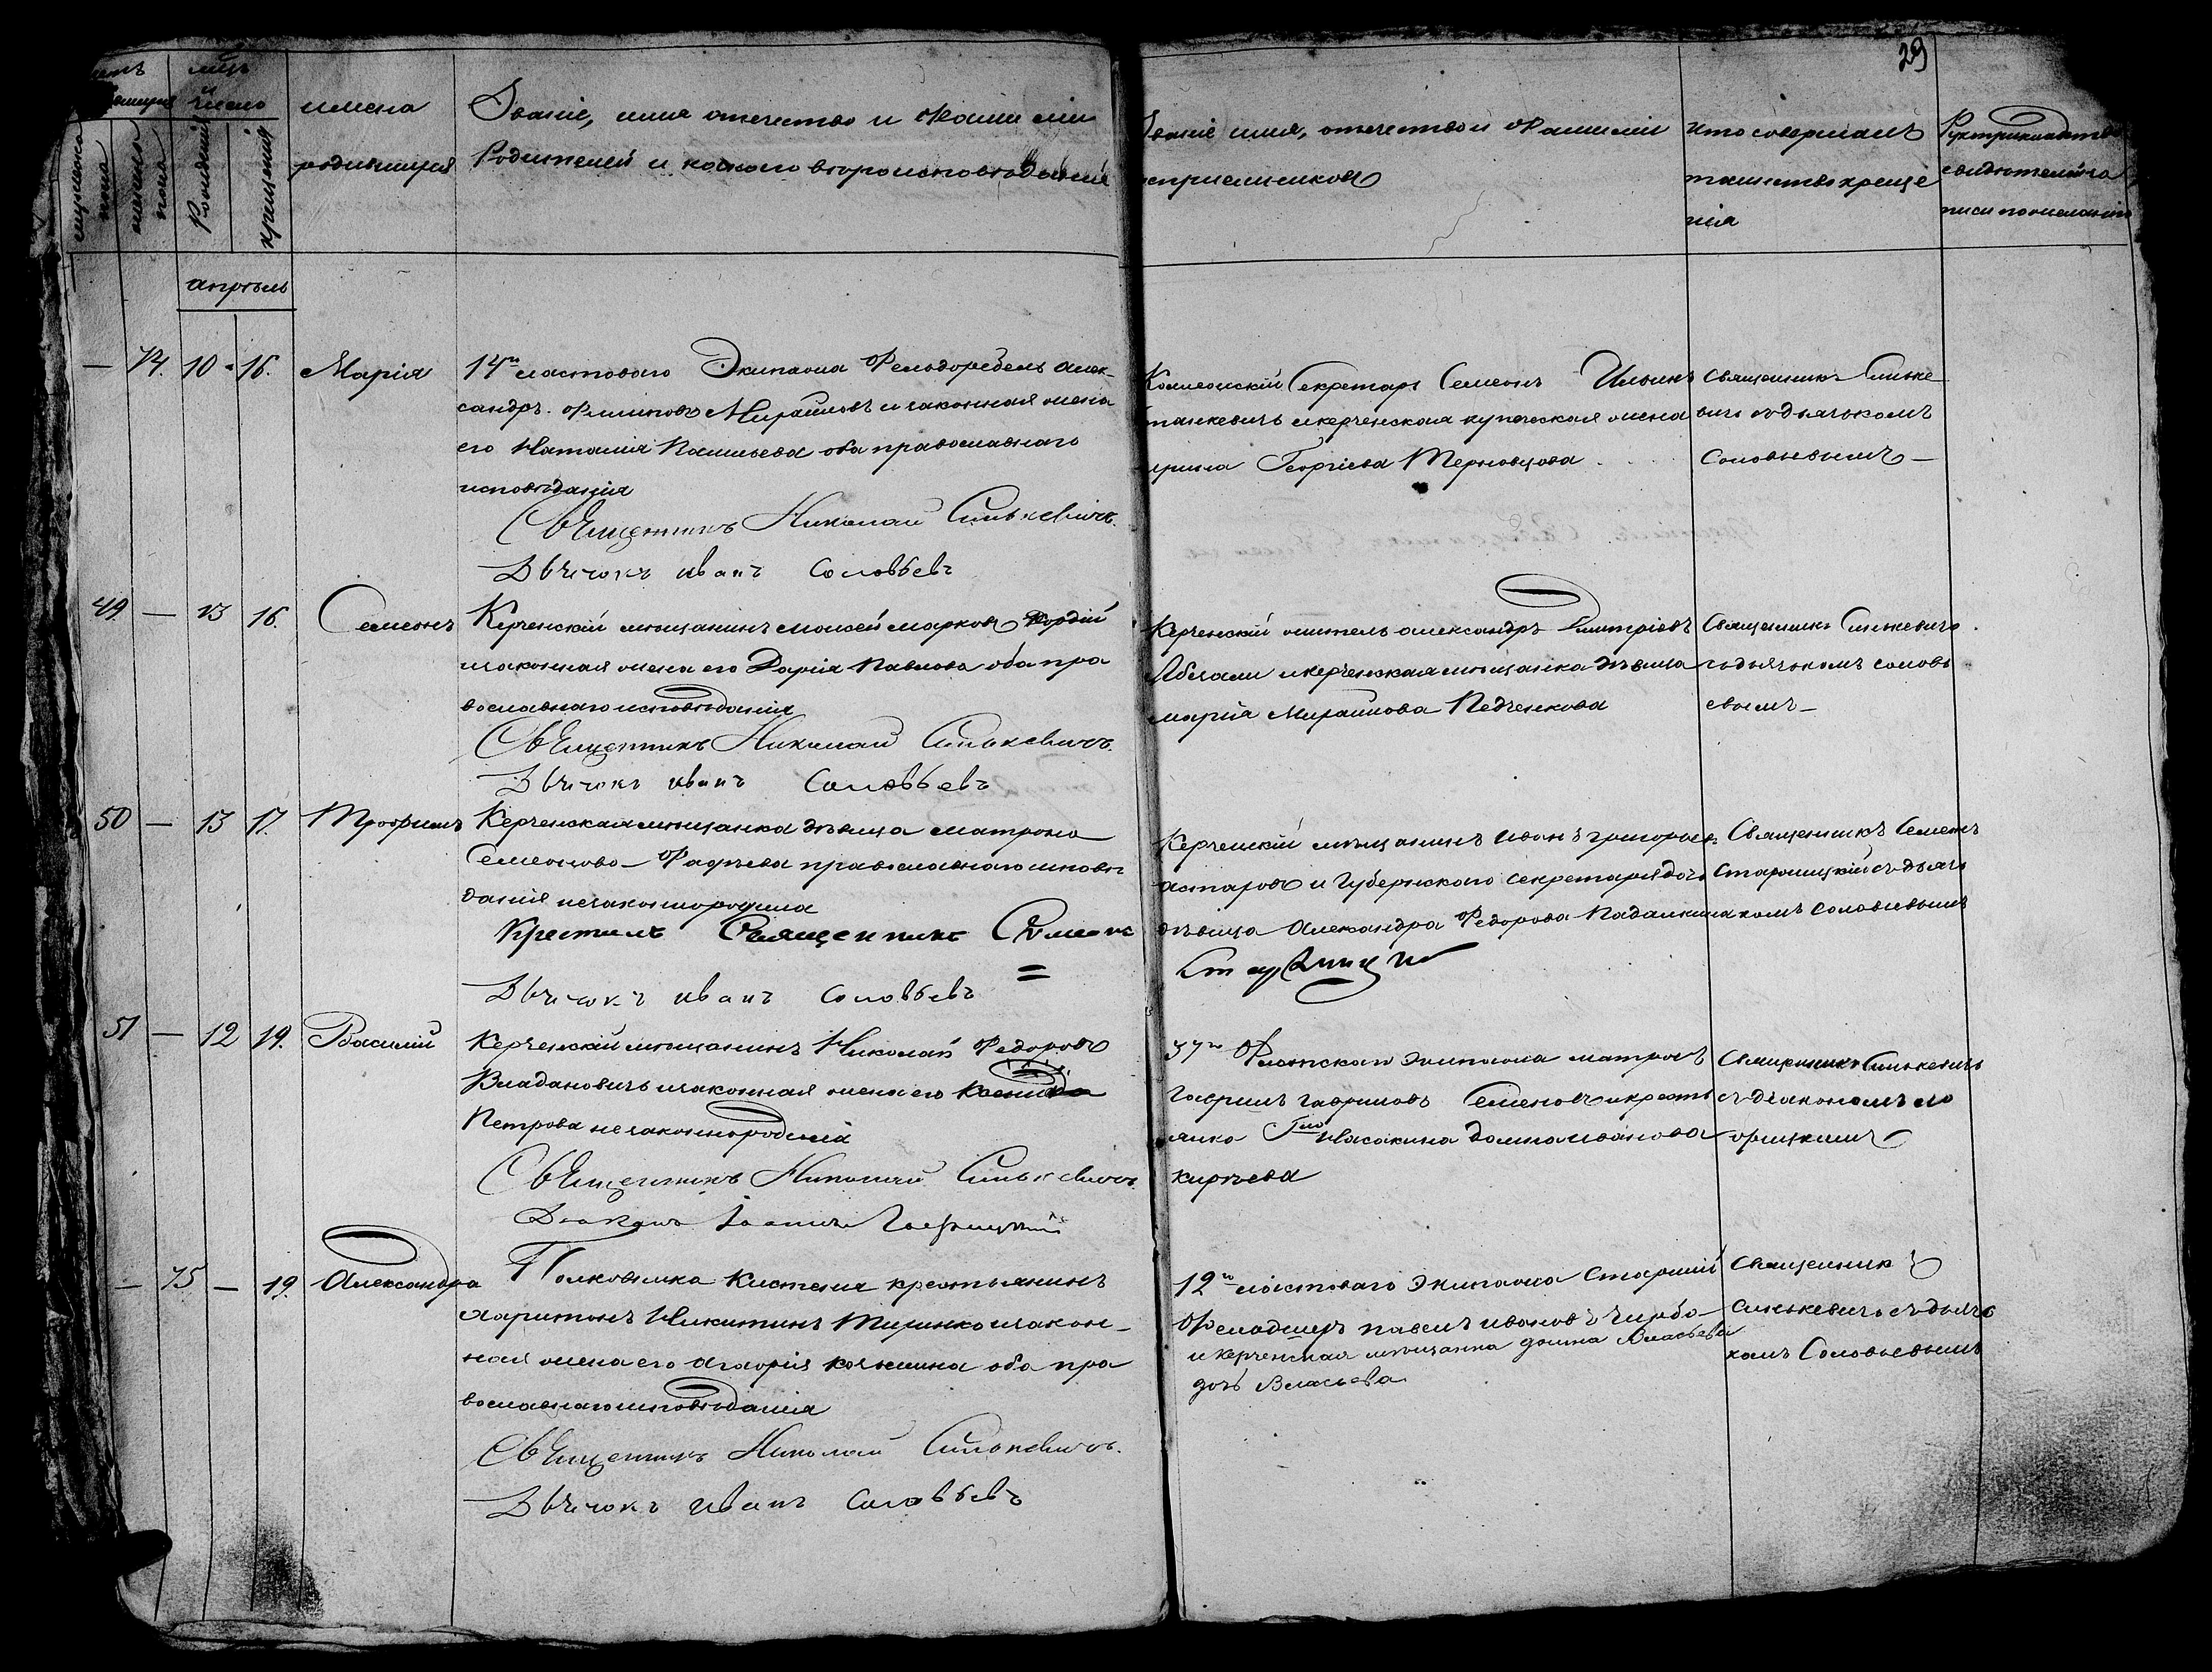 29
мѣц
и
число
мужеска
пола
женска
пола
Рожденія
крещенія
имена
родившихся
Званіе, имя отечество и Фамиліи
Родителей и какого вѣроисповѣданія
Званіе имя, отечество и Фамиліи
воспріемниковъ
кто совершалъ
таинство креще
нія
Рукоприкладство
свидѣтелей за
писи по желанію
апрѣль
— 74. 10 - 16. Марія
14го ластоваго Экипажа Фельдфебель Алек-
сандръ Филиповъ Михайловъ и законная жена
его Наталія Васильева оба православнаго
исповѣданія
Священникъ Николай Синькевичъ.
Дьячокъ Иванъ Соловьевъ
Коллежскій Секретарь Семенъ Ильинъ
танкевичъ и керченская купеческая жена
ирина Георгіева Терновцова
Священникъ Синке
вичъ съ дьячькомъ
Соловьевымъ —
49. — 13 16. Семеонъ
Керченскій мѣщанинъ Моисей Марковъ Гордій
и законная жена его Дарія Павлова оба пра
вославнаго исповѣданія
Священникъ Николай Синькевичъ.
Дьячокъ Иванъ Соловьевъ
Керченскій житель Александръ Дмитріевъ
и керченская мѣщанка дѣвица
Марія Михайлова Педченкова
Священникъ Синькевичъ
съ дьячькомъ Соловь
евымъ —
50 — 13 17. Трофимъ
Керченская мѣщанка дѣвица Матрона
Семеонова Фадѣева православнаго исповѣ
данія незаконнородила
Крестилъ Священникъ Симеонъ
Дьячокъ Иванъ Соловьевъ
Керченскій мѣщанинъ Иванъ Григорьевъ
астаровъ и Губернскаго Секретаря дочь
дѣвица Александра Федорова Падалкина
Старицкій
Священникъ Семенъ
Старицкій съ дьяч
комъ Соловьевымъ
51 — 12 19. Василій
Керченскій мѣщанинъ Николай Федоровъ
Владановичъ и законная жена его
Петрова незаконнородила
Священникъ Николай Синькевичъ.
Діаконъ Іоаннъ
37го Флотскаго Экипажа матросъ
Гаврилъ Гавриловъ Семеновъ и кресть
янка Гжи Насакина Домна Иванова
Киртьева
Священникъ Синькевичъ
съ діакономъ
— 75 — 19. Александра
Полковника Кистенія крестьянинъ
Харитонъ Никитинъ Тищенко и закон-
ная жена его Агафія Козьмина оба пра
вославнаго исповѣданія
Священникъ Николай Синькевичъ.
Дьячокъ Иванъ Соловьевъ
12го ластоваго Экипажа Старшій
Фельдшеръ Павелъ Ивановъ
и Керченская мѣщанка Домна Власьева
дочь Власьева
Священникъ
Синькевичъ съ дьяч
комъ Соловьевымъ